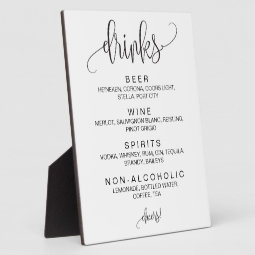 drinks
BEER
HEINEKEN, CORONA, COORS LIGHT,
STELLA, PORT CITY
WINE
MERLOT, SAUVIGNON BLANC, RIESLING,
PINOT GRIGIO
SPIRITS
VODKA, WHISKEY, RUM, GIN, TEQUILA,
BRANDY, BAILEYS
NON-ALCOHOLIC
LEMONADE, BOTTLED WATER,
COFFEE, TEA
cheers!